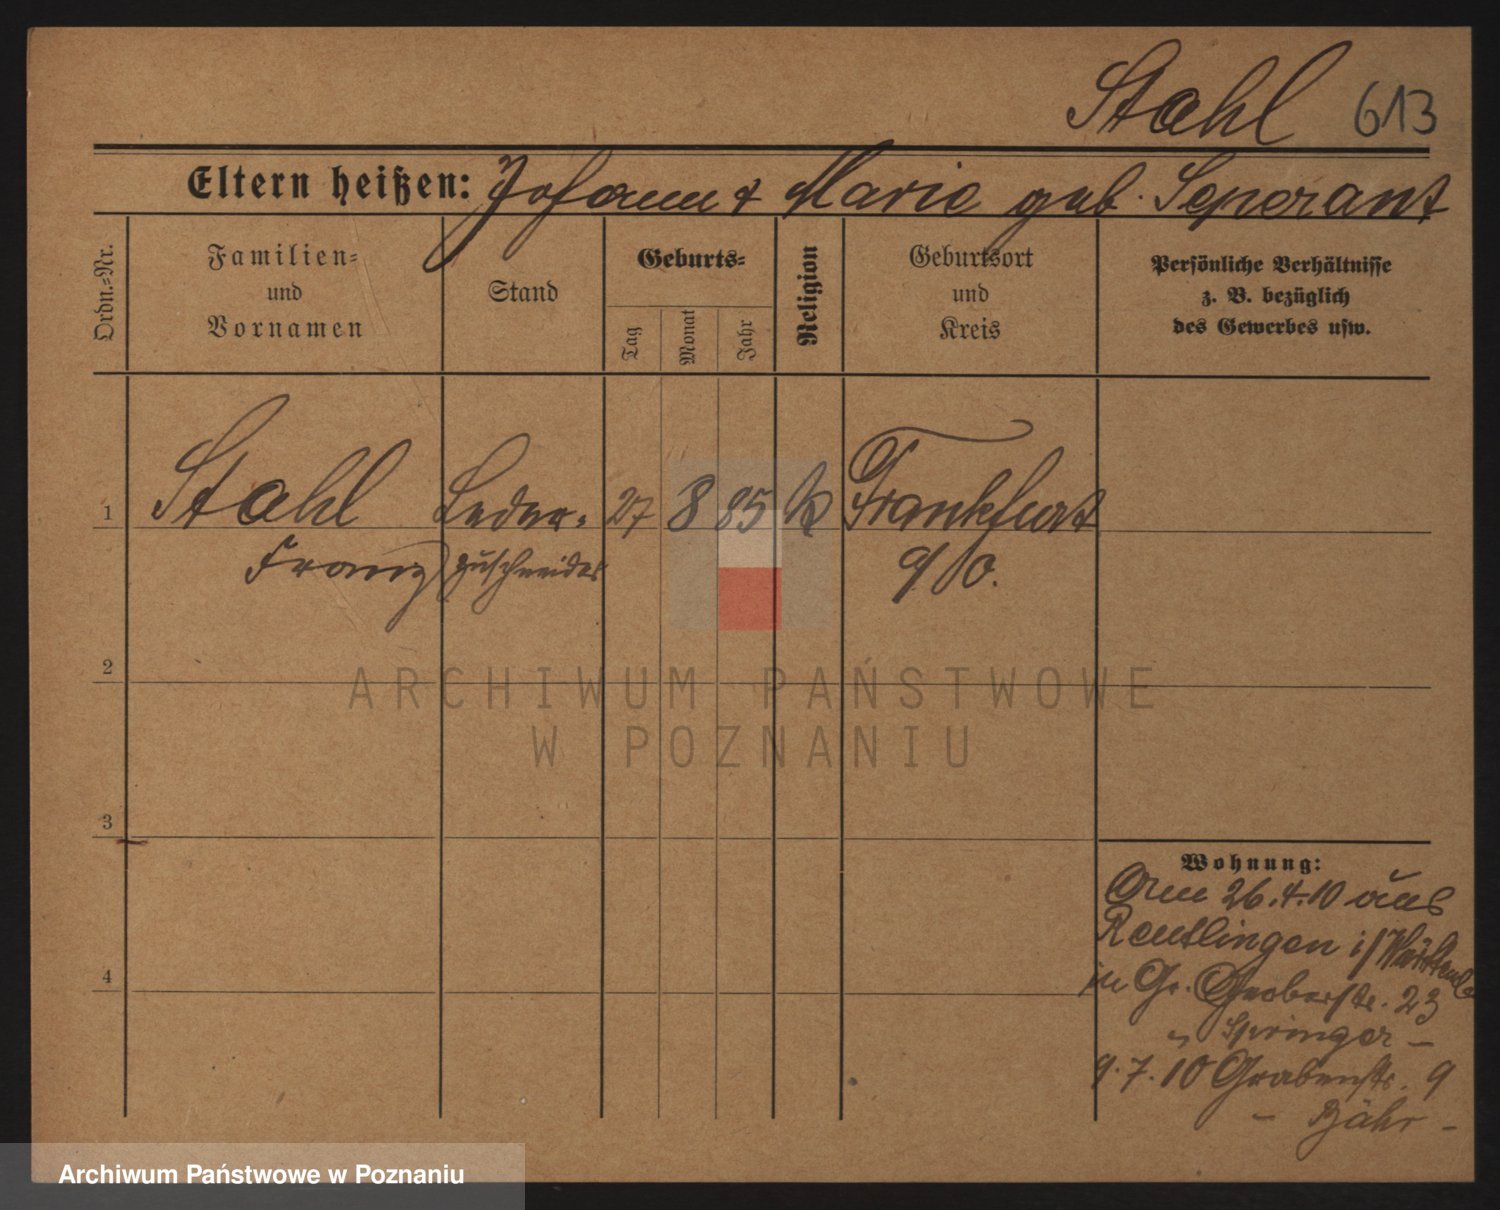 Stahl 613
Eltern heißen: Johann & Marie geb. Seperant
Ordn.=Nr.
Familien=
und
Vornamen
Stand
Geburts=
Tag
Monat
Jahr
Religion
Geburtsort
und
Kreis
Persönliche Verhältnisse
z. B. bezüglich
des Gewerbes usw.
1 Stahl Leder- 27 8 85 k Frankfurt
Franz zuschneider a/O.
2
3
4
Wohnung:
Am 26.4.10 aus
Reutlingen i/Württemb
in Gr. Gerberstr. 23
" Springer -
9.7.10 Grabenstr. 9
- Bähr -
ARCHIWUM PAŃSTWOWE
W POZNANIU
Archiwum Państwowe w Poznaniu